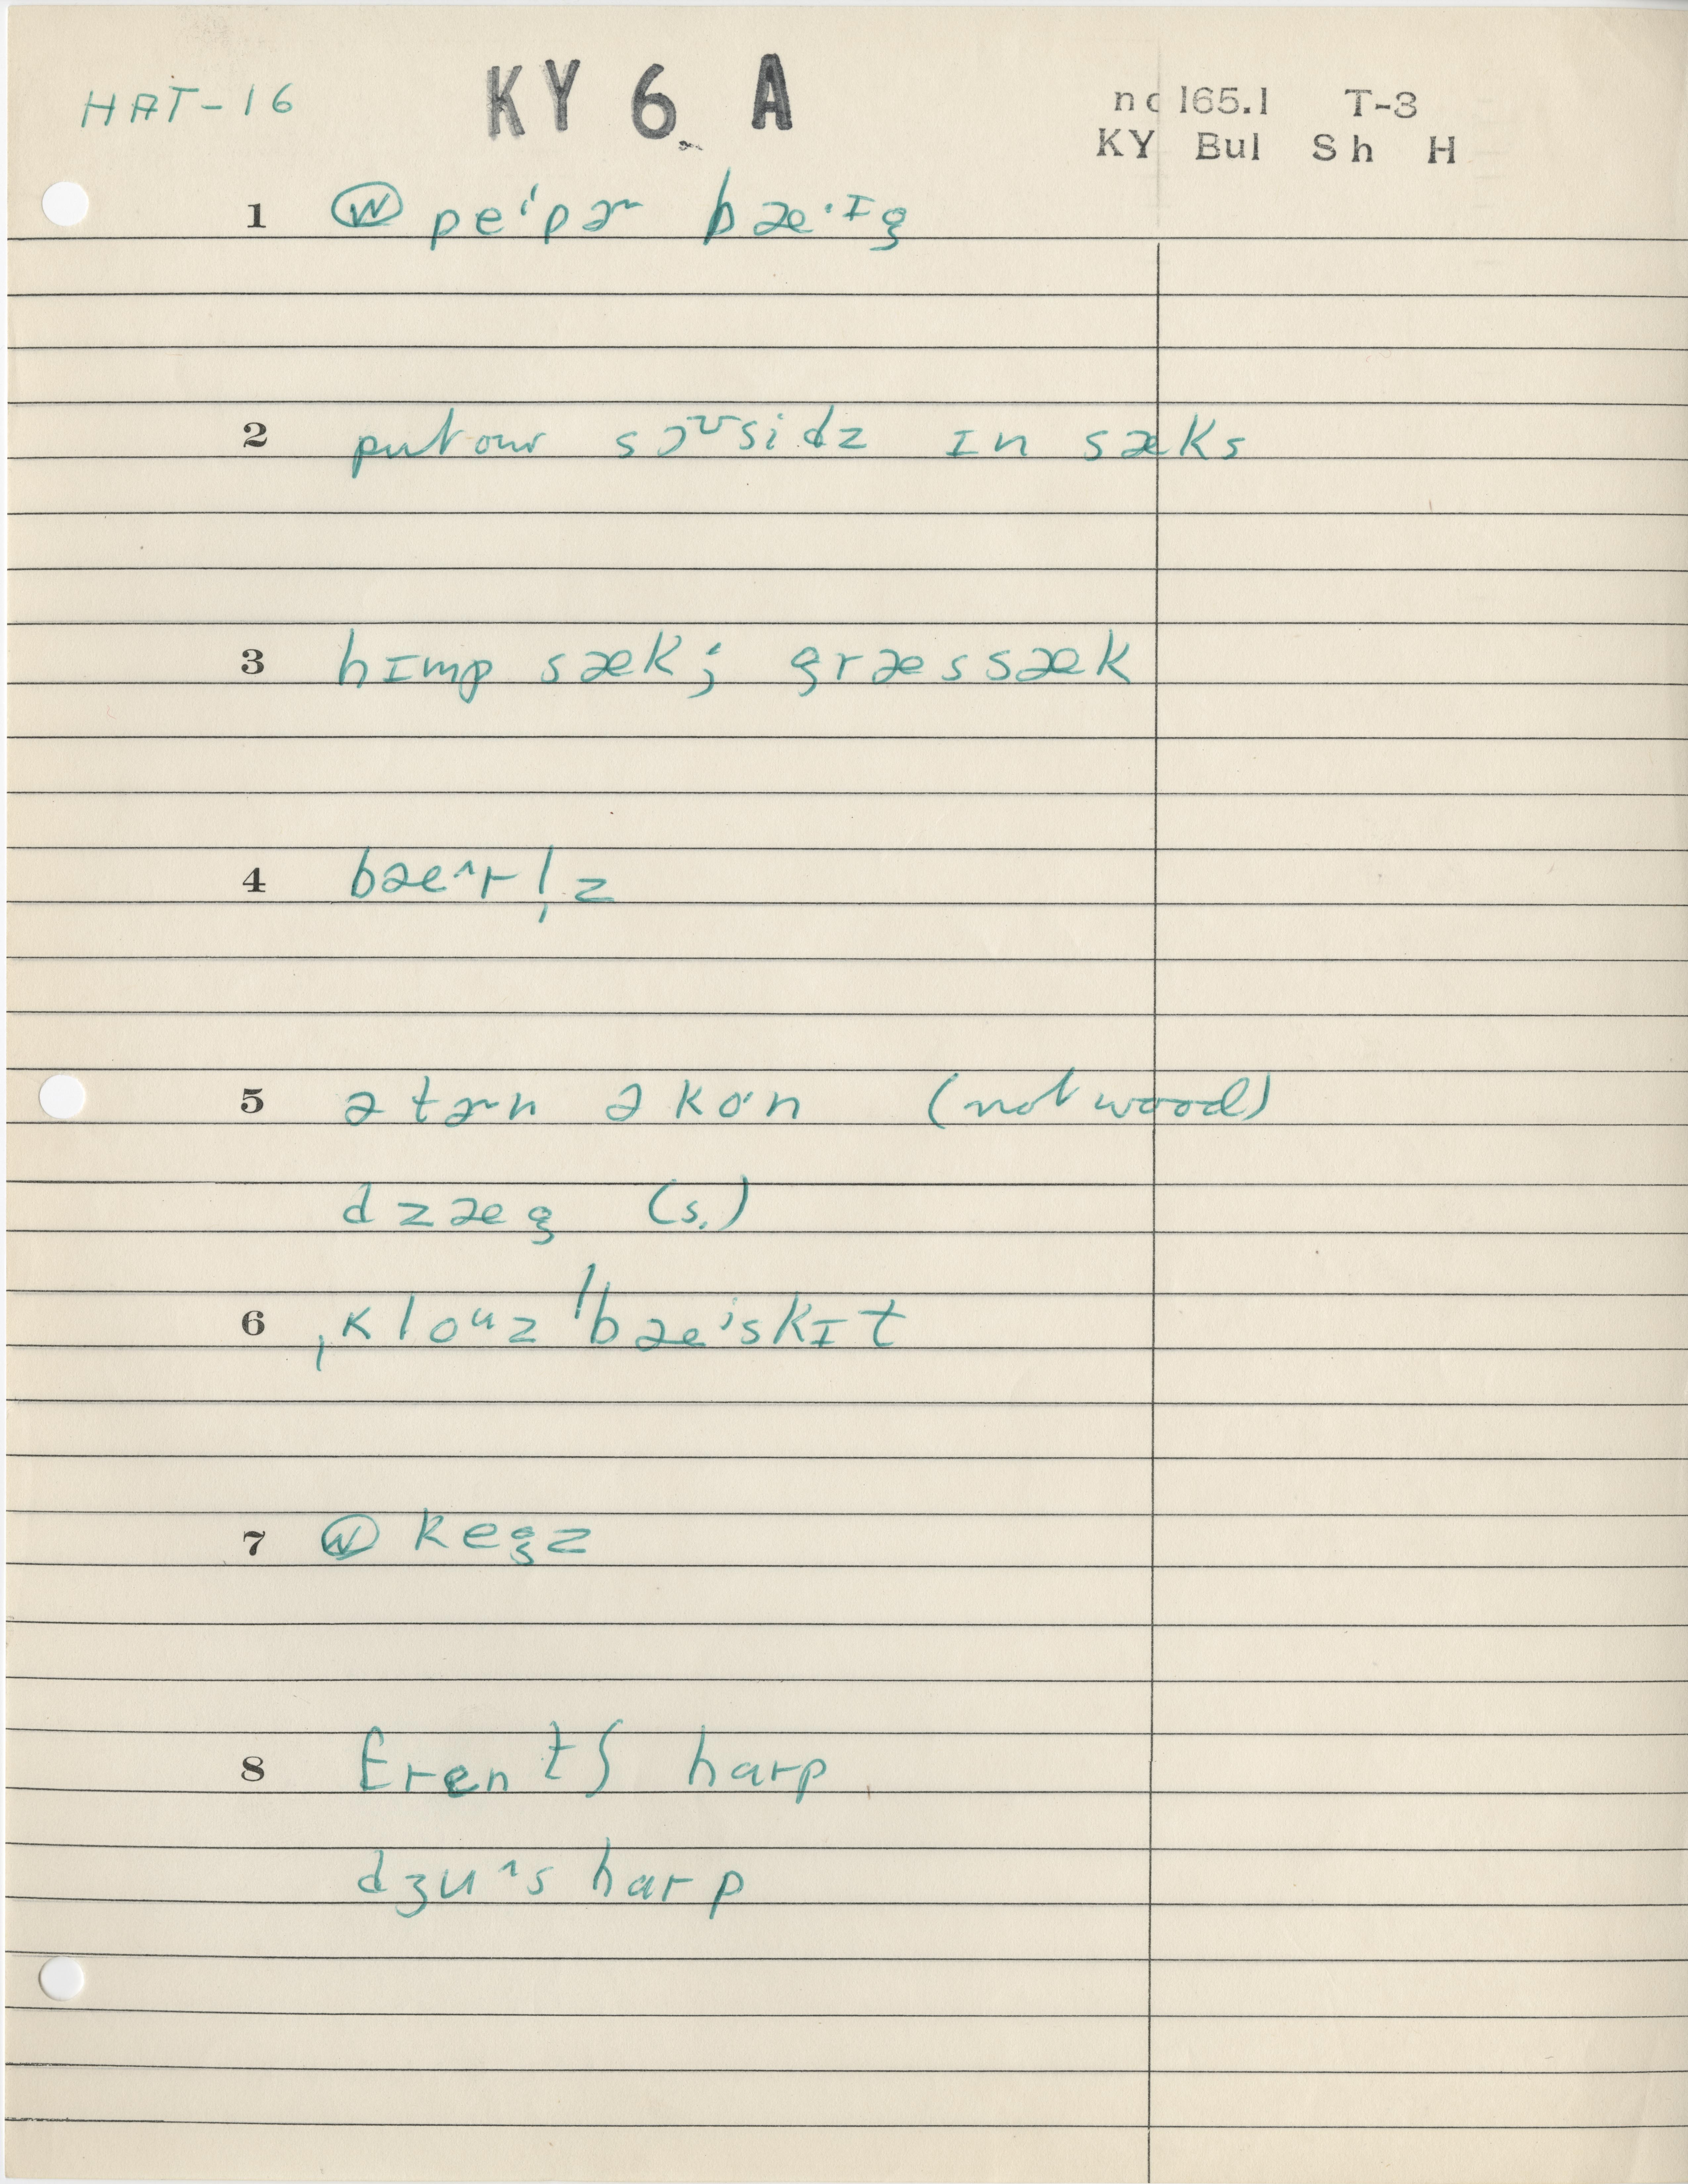 HAT-16 KY 6 A nc 165.1 T-3
KY Bul Sh H
1 Ⓦ peˈpɚ bæ·ɪg
2 put our sɔʊsidz ɪn sæks
3 hɪmp sæk; græssæk
4 bæ^rl̩z
5 ə tɚn ə kɔ·n (not wood)
dzæg (s.)
6 ˌkloᵘz ˈbæⁱskɪt
7 Ⓦ kegz
8 frɛntʃ harp
dʒu^s harp